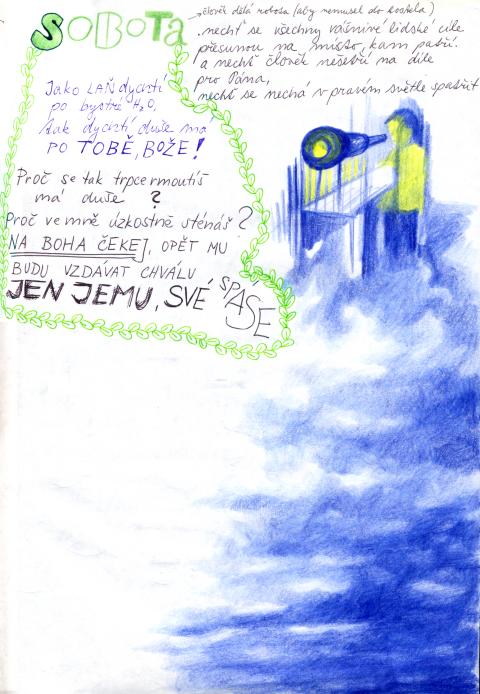 SOBOTA
člověk dělá robota (aby nemusel do kostela)
nechť se všechny vášnivé lidské cíle
přesunou na místo, kam patří.
a nechť člověk nešetří na díle
pro Pána,
nechť se nechá v pravém světle spatřit
Jako LAŇ dychtí
po bystré H₂O,
tak dychtí duše má
PO TOBĚ, BOŽE!
Proč se tak trpce rmoutíš
má duše?
Proč ve mně úzkostně sténáš?
NA BOHA ČEKEJ, OPĚT MU
BUDU VZDÁVAT CHVÁLU
JEN JEMU, SVÉ SPÁSE